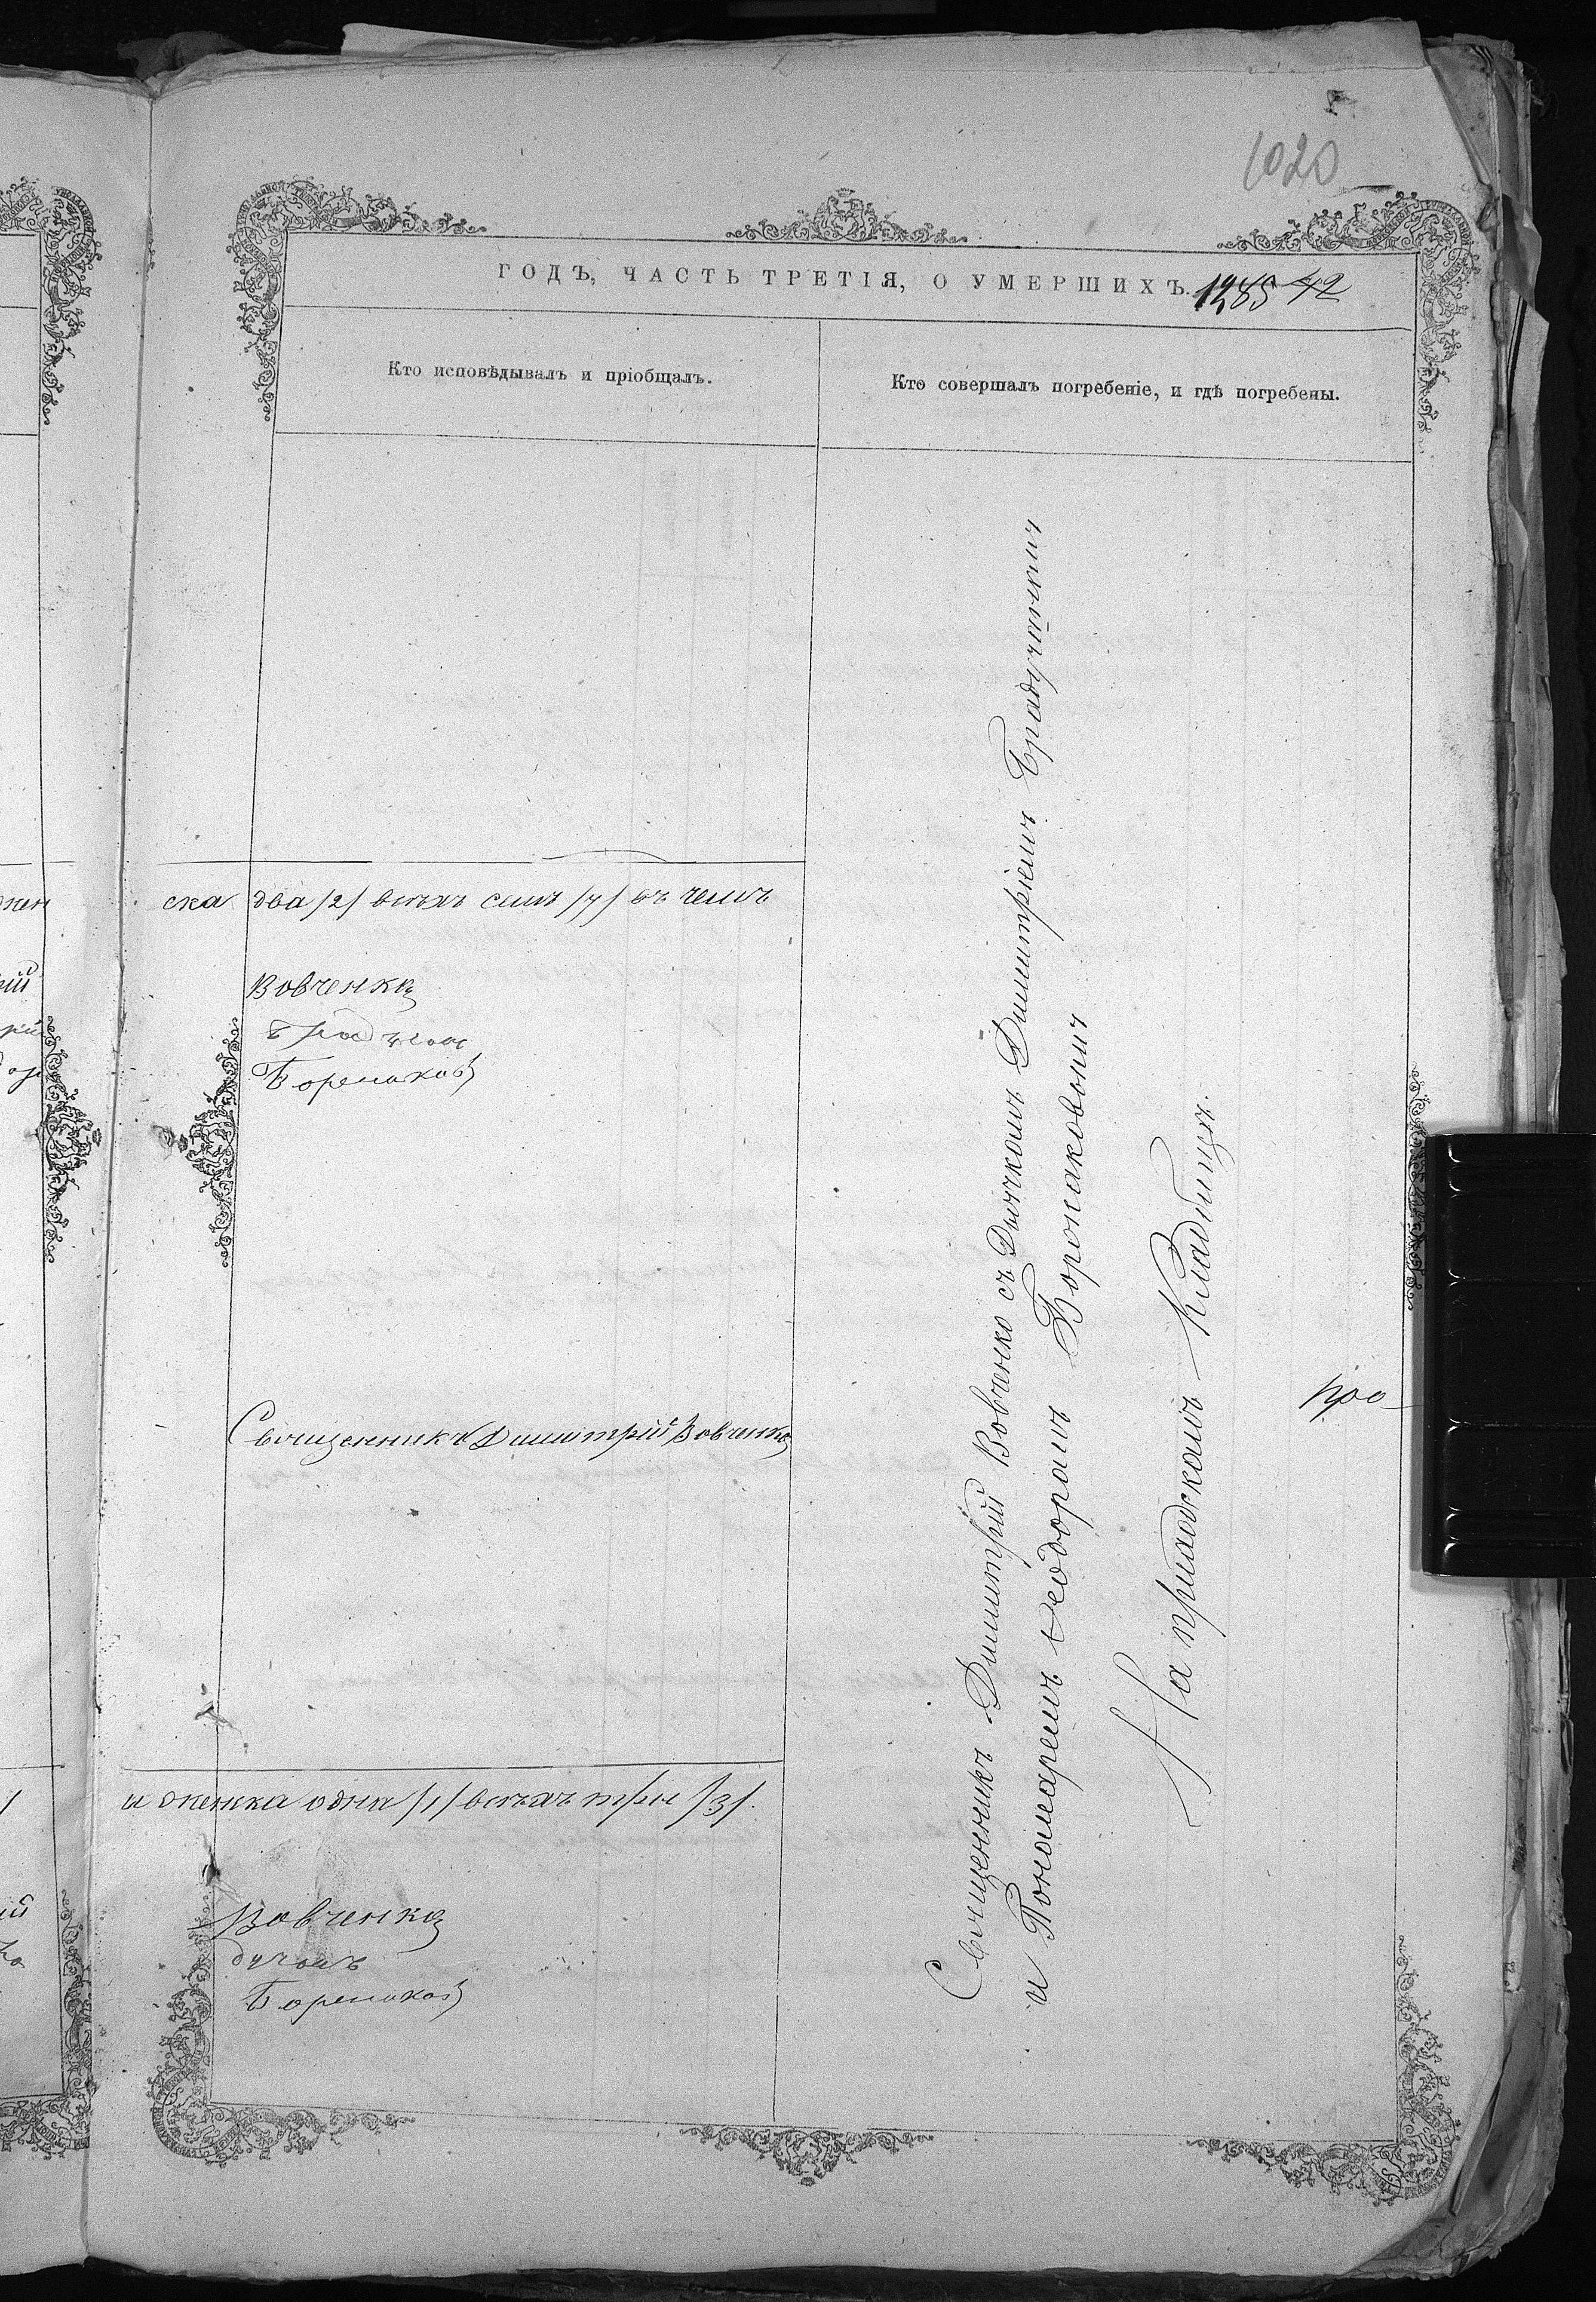 1020
ГОДЪ, ЧАСТЬ ТРЕТІЯ, О УМЕРШИХЪ. 1285 42
Кто исповѣдывалъ и пріобщалъ.
Кто совершалъ погребеніе, и гдѣ погребены.
ска два /2/ всѣхъ семь /7/ въ чемъ
Вовченко
Священникъ Димитрій Вовченко
и женска одна /1/ всѣхъ три /3/.
Вовченко
Священникъ Димитрій Вовченко съ Дьячкомъ Димитріемъ
и Пономаремъ Ѳеодоромъ
На приходскомъ Кладбищѣ.
про